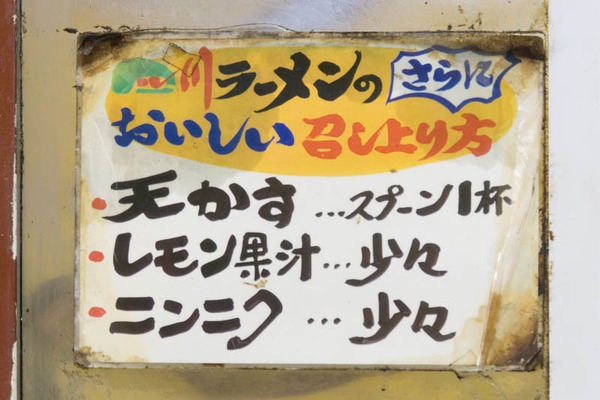 川ラーメンの さらに
おいしい 召し上り方
天かす…スプーン1杯
レモン果汁…少々
ニンニク…少々